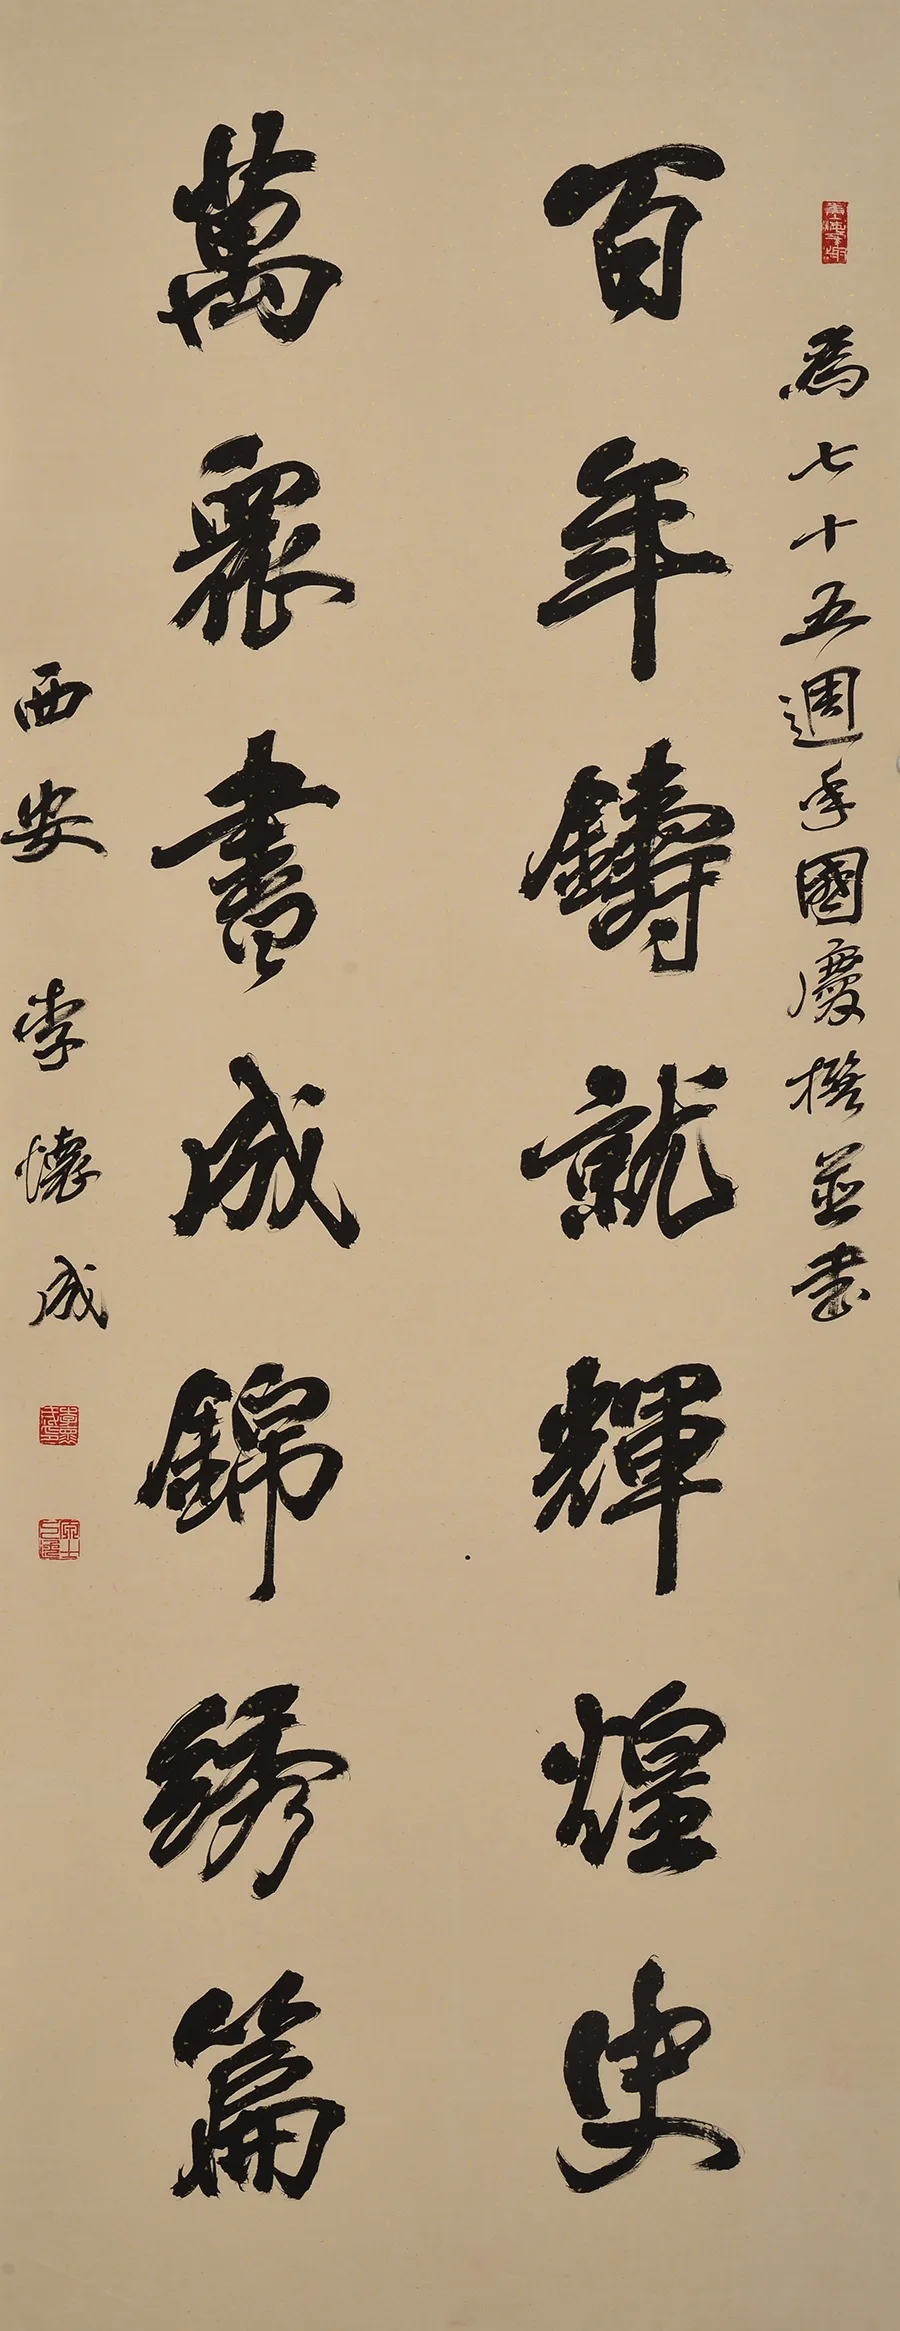 為七十五週年國慶撰並書
百年鑄就輝煌史
萬眾書成錦綉篇
西安 李懷成